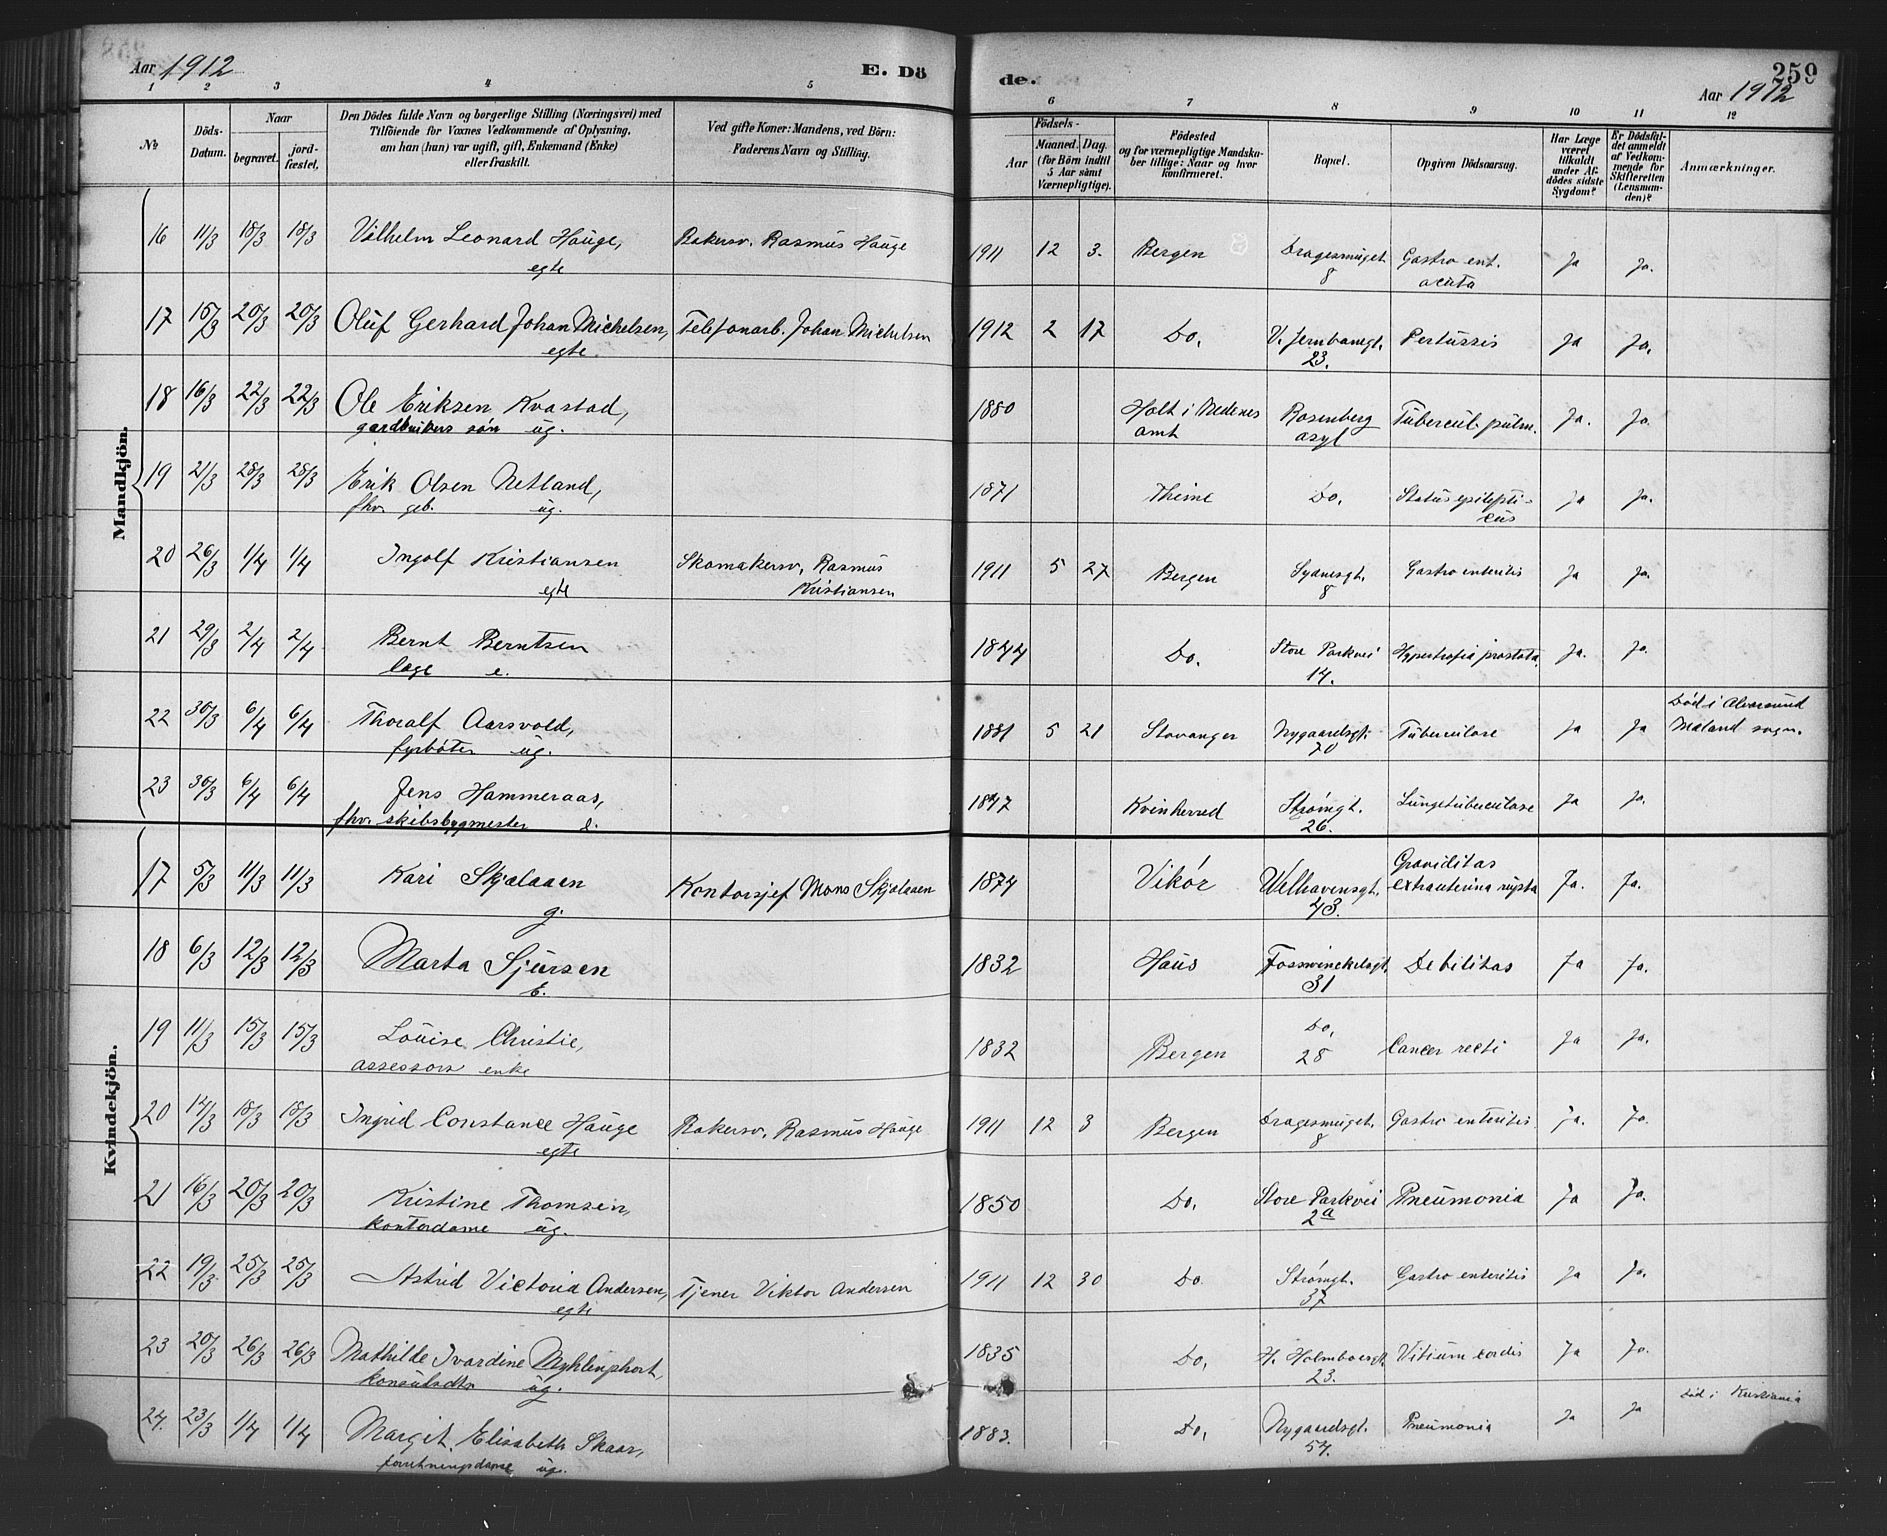 Aar 1912
E. Döde.
259
Aar 1912
1 2 3 4 5 6 7 8 9 10 11 12
No
Döds-Datum.
Naar
begravet.
jord-fæstet.
Den Dödes fulde Navn og borgerlige Stilling (Næringsvei) med
Tilföiende for Voxnes Vedkommende af Oplysning,
om han (hun) var ugift, gift, Enkemand (Enke)
eller fraskilt.
Ved gifte Koner: Mandens, ved Börn:
Faderens Navn og Stilling.
Födsels-
Aar
Maaned. Dag.
(for Börn indtil
5 Aar samt
Værnepligtige).
Födested
og for værnepligtige Mandska-
ber tillige: Naar og hvor
konfirmeret.
Bopæl.
Opgiven Dödsaarsag.
Har Læge
været
tilkaldt
under Af-
dödes sidste
Sygdom?
Er Dödsfal-
det anmeldt
af Vedkom-
mende for
Skifteretten
(Lensman-
den)?
Anmærkninger.
Mandkjön.
16 11/3 18/3 18/3 Vilhelm Leonard Hauge, Bakersv. Rasmus Hauge 1911 12 3. Bergen Dragesmuget Gastro ent. Ja Ja.
egte 8 acuta
17 15/3 20/3 20/3 Oluf Gerhard Johan Michelsen, Telefonarb. Johan Michelsen 1912 2 17 Do. V. Jernbanegt. Pertussis Ja Ja.
egte 23.
18 16/3 22/3 22/3 Ole Eriksen Kvastad, 1880 Holt i Nedenes Rosenberg Tubercul. pulm. Ja. Ja.
gardbrukers søn ug. amt asyl
19 21/3 28/3 28/3 Erik Olsen Netland, 1871 Thime Do. Status epilepti- Ja Ja.
fhv. geb. ug. cus
20 26/3 1/4 1/4 Ingolf Kristiansen Skomakersv. Rasmus 1911 5 27 Bergen Sydnesgt. Gastro enteritis Ja Ja.
egte Kristiansen 8
21 29/3 2/4 2/4 Bernt Berntsen 1844 Do. Store Parkvei Hypertrofia prostata Ja. Ja.
læge e. 14.
22 30/3 6/4 6/4 Thoralf Aarsvold, 1881 5 21 Stavanger Nygaardsgt. Tuberculose Ja Ja Död i Alversund
fyrbøter ug. 70 Mæland sogn.
23 30/3 6/4 6/4 Jens Hammeraas, 1847 Kvinherred Strømgt. Lungetuberculose Ja Ja.
fhv. skibsbygmester e. 26.
Kvindekjön.
17 5/3 11/3 11/3 Kari Skjelaaen Kontorsjef Mons Skjelaaen 1874 Vikør Welhavensgt. Graviditas Ja. Ja.
g. 43. extrauterina rupta
18 6/3 12/3 12/3 Marta Sjursen 1832 Haus Fosswinckelsgt. Debilitas Ja Ja.
E. 31
19 11/3 15/3 15/3 Louise Christie, 1832 Bergen Do. Cancer recti Ja Ja.
assessors enke 28
20 14/3 18/3 18/3 Ingrid Constance Hauge Bakersv. Rasmus Hauge 1911 12 3 Bergen Dragesmuget. Gastro enteritis Ja. Ja.
egte 8
21 16/3 20/3 20/3 Kristine Thomsen, 1850 Do. Store Parkvei Pneumonia Ja Ja.
kontordame ug. 2a
22 19/3 25/3 25/3 Astrid Victoria Andersen, Tjener Viktor Andersen 1911 12 30 Do. Strømgt. Gastro enteritis Ja Ja.
egte 37
23 20/3 26/3 26/3 Mathilde Ivardine 1835 Do. H. Holmboesgt. Vitium cordis Ja Ja.
konsulsdtr ug. 23.
24. 23/3 1/4 1/4 Margit Elisabeth Skaar, 1883. Do. Nygaardsgt. Pneumonia Ja Ja Död i Kristiania
forretningsdame ug. 57.